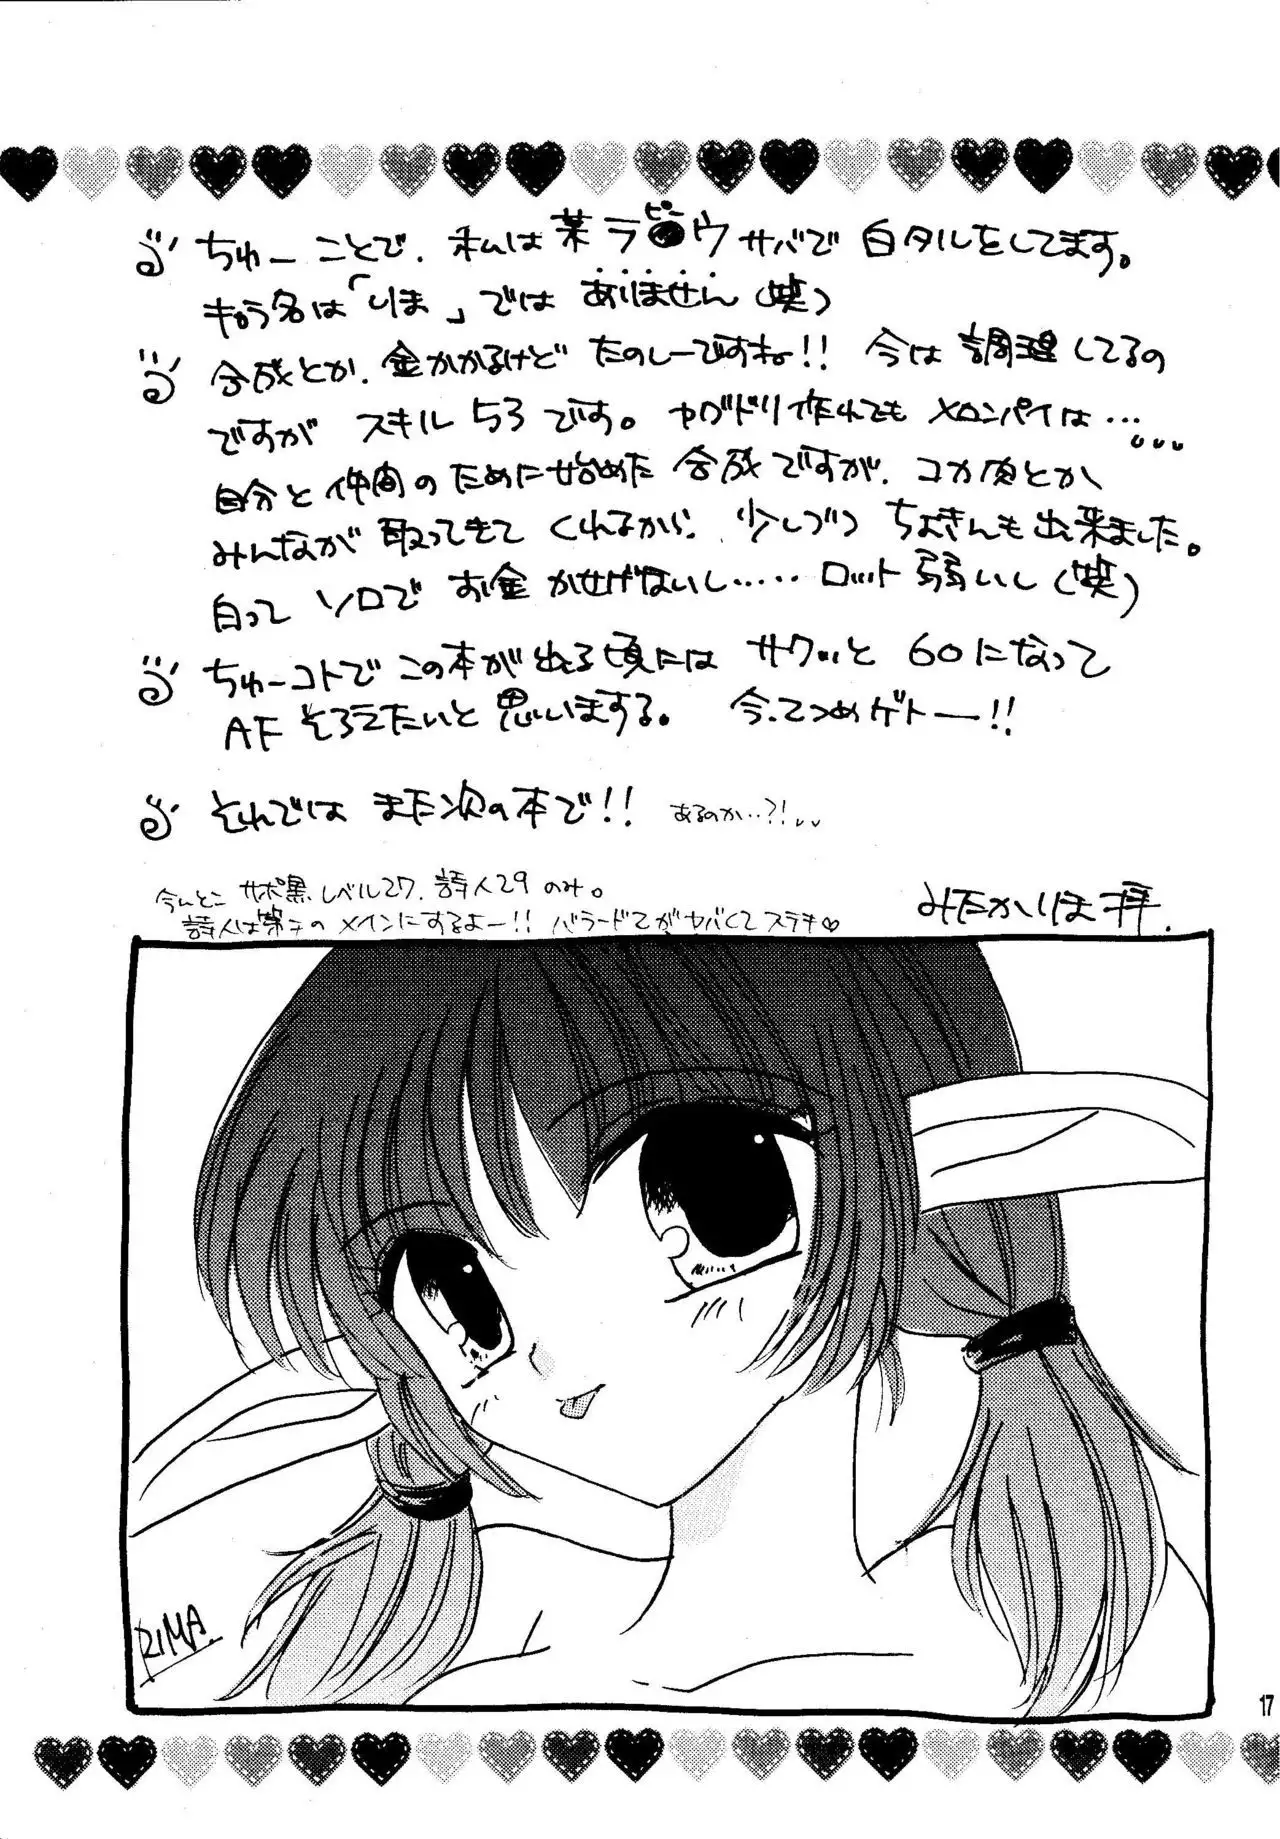 ちゅーことで、私は某ラ●ウサバで白タルをしてます。
ピー
キャラ名は「りま」ではありません(笑)
合成とか、金かかるけどたのしーですね!! 今は調理してるの
ですがスキル53です。ヤグドリ作れてもメロンパイは…
自分と仲間のために始めた合成ですが、コカ肉とか
みんなが取ってきてくれるから、少しづつちょきんも出来ました。
白ってソロでお金かせげないし……ロット弱いし(笑)
ちゅーコトでこの本が出る頃にはサクッと60になって
AFそろえたいと思いまする。 今、てつめゲトー!!
それではまた次の本で!! あるのか…?!
今んとこサポ黒レベル27、詩人29のみ。
詩人は第二のメインにするよー!! バラードてがヤバくてステキ♡
みたかりま拝.
RIMA.
17